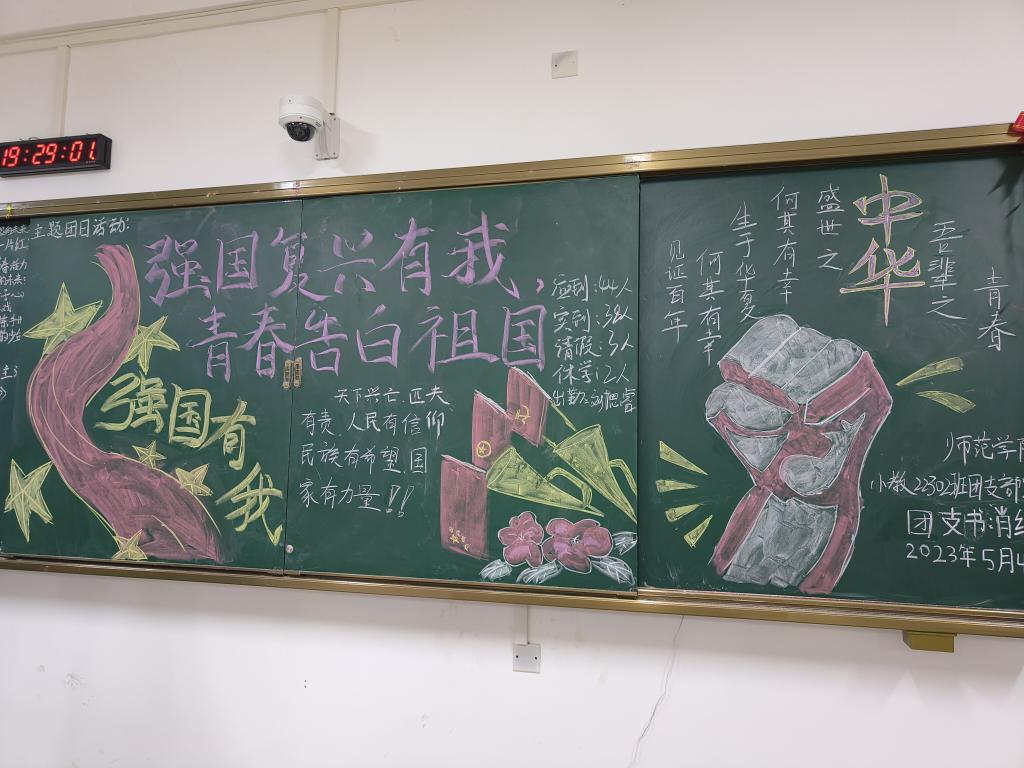 19:29:01
主题团日活动:
一片红
强国复兴有我,
青春告白祖国
强国有
我
天下兴亡、匹夫
有责、人民有信仰
民族有希望国
家有力量!!
应到:44人
实到:38人
请假:3人
休学:2人
青春
吾辈之
中华
盛世之
何其有幸
生于华夏
何其有幸
见证百年
师范学院
小教2302班团支部
团支书:肖
2023年5月4